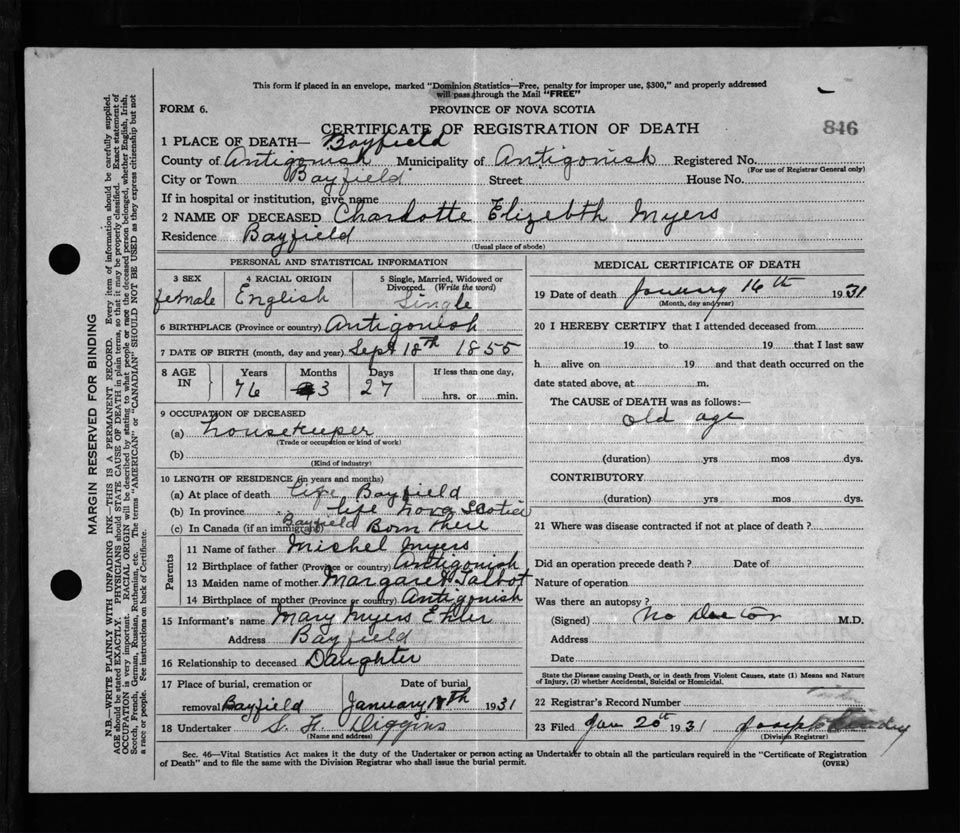 This form if placed in an envelope, marked "Dominion Statistics—Free, penalty for improper use, $300," and properly addressed
will pass through the Mail "FREE"
FORM 6. PROVINCE OF NOVA SCOTIA
CERTIFICATE OF REGISTRATION OF DEATH 846
1 PLACE OF DEATH— Bayfield
County of Antigonish Municipality of Antigonish Registered No.
(For use of Registrar General only)
City or Town Bayfield Street House No.
If in hospital or institution, give name
2 NAME OF DECEASED Charlotte Elizebth Myers
Residence Bayfield
(Usual place of abode)
PERSONAL AND STATISTICAL INFORMATION
3 SEX 4 RACIAL ORIGIN 5 Single, Married, Widowed or
Divorced. (Write the word)
female English Single
6 BIRTHPLACE (Province or country) Antigonish
7 DATE OF BIRTH (month, day and year) Sept 18th 1855
8 AGE IN Years Months Days If less than one day,
76 3 27 hrs. or min.
9 OCCUPATION OF DECEASED
(a) housekeeper
(Trade or occupation or kind of work)
(b)
(Kind of industry)
10 LENGTH OF RESIDENCE (in years and months)
(a) At place of death life Bayfield
(b) In province life Nova Scotia
(c) In Canada (if an immigrant) Bayfield Born There
Parents
11 Name of father Michel Myers
12 Birthplace of father (Province or country) Antigonish
13 Maiden name of mother Margaret Talbot
14 Birthplace of mother (Province or country) Antigonish
15 Informant's name Mary Myers Ehler
Address Bayfield
16 Relationship to deceased Daughter
17 Place of burial, cremation or Date of burial
removal Bayfield January 18th 1931
18 Undertaker Diggins
(Name and address)
MEDICAL CERTIFICATE OF DEATH
19 Date of death January 16th 1931
(Month, day and year)
20 I HEREBY CERTIFY that I attended deceased from
19 to 19 that I last saw
h alive on 19 and that death occurred on the
date stated above, at m.
The CAUSE of DEATH was as follows:—
old age
(duration) yrs mos dys.
CONTRIBUTORY
(duration) yrs mos dys.
21 Where was disease contracted if not at place of death?
Did an operation precede death? Date of
Nature of operation
Was there an autopsy?
(Signed) No Doctor M.D.
Address
Date
State the Disease causing Death, or in death from Violent Causes, state (1) Means and Nature
of Injury, (2) whether Accidental, Suicidal or Homicidal.
22 Registrar's Record Number
23 Filed Jan 20th 1931 Joseph
(Division Registrar)
Sec. 46—Vital Statistics Act makes it the duty of the Undertaker or person acting as Undertaker to obtain all the particulars required in the "Certificate of Registration
of Death" and to file the same with the Division Registrar who shall issue the burial permit. (OVER)
MARGIN RESERVED FOR BINDING
N.B.—WRITE PLAINLY WITH UNFADING INK—THIS IS A PERMANENT RECORD. Every item of information should be carefully supplied.
AGE should be stated EXACTLY. PHYSICIANS should STATE CAUSE OF DEATH in plain terms, so that it may be properly classified. Exact statement of
OCCUPATION is very important. RACIAL ORIGIN will be described by stating to what people or race the deceased person belonged, whether English, Irish,
Scotch, French, German, Russian, Ruthenian, etc. The terms "AMERICAN" or "CANADIAN" SHOULD NOT BE USED as they express citizenship but not
a race or people. See instructions on back of Certificate.